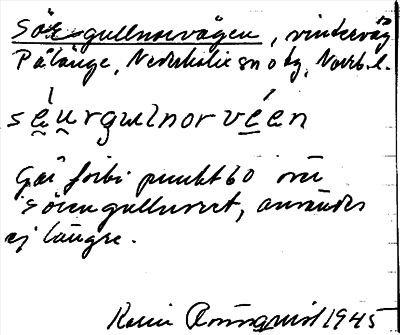 Sör-gullnorvägen, vinterväg
Pålänge, Nederkalix sn o tg, Norrb. l.
séurgulnorvéen
Går förbi punkt 60 över
Sörengullnorret, användes
ej längre.
1945